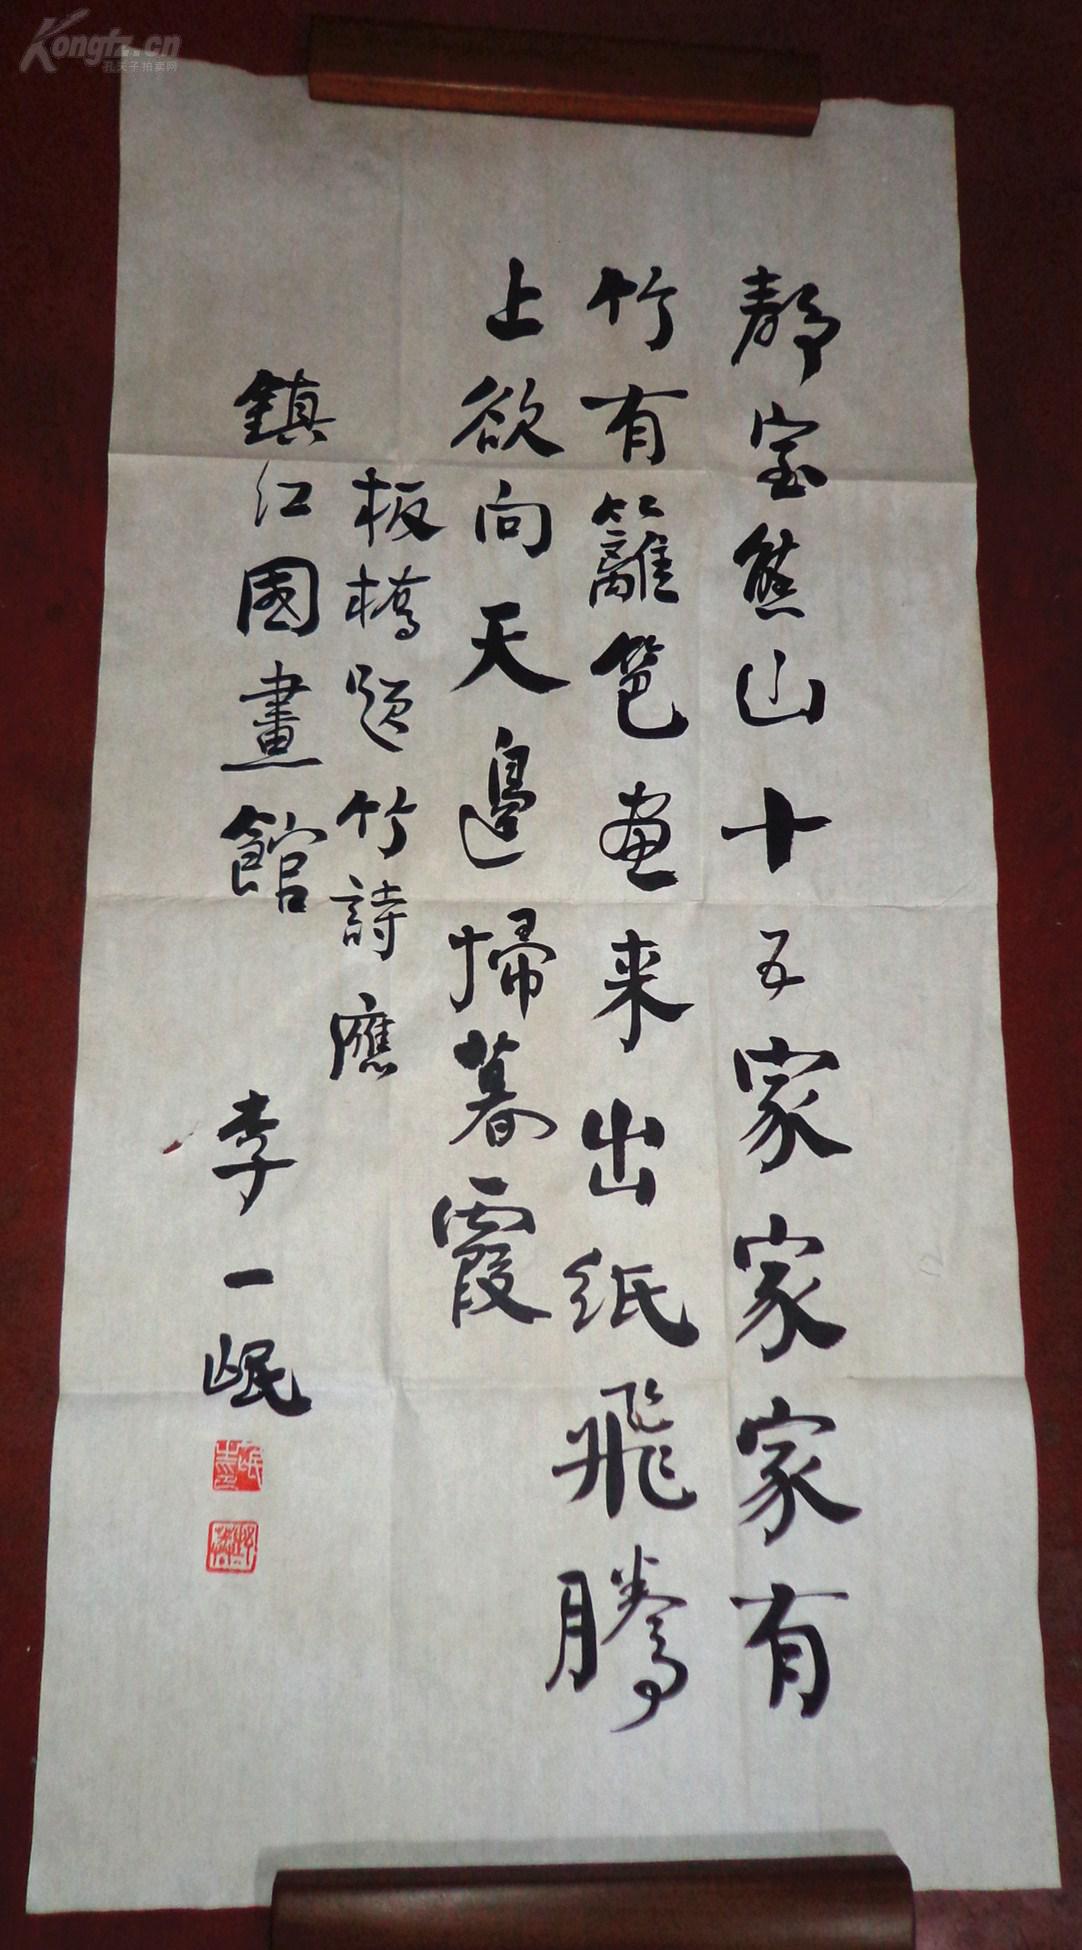 静室焦山十五家家家有
竹有籬笆画来出纸飛騰
上欲向天邊掃暮霞
板橋题竹詩應
鎮江國畫館
李一氓
Kongfz.cn
孔夫子拍卖网